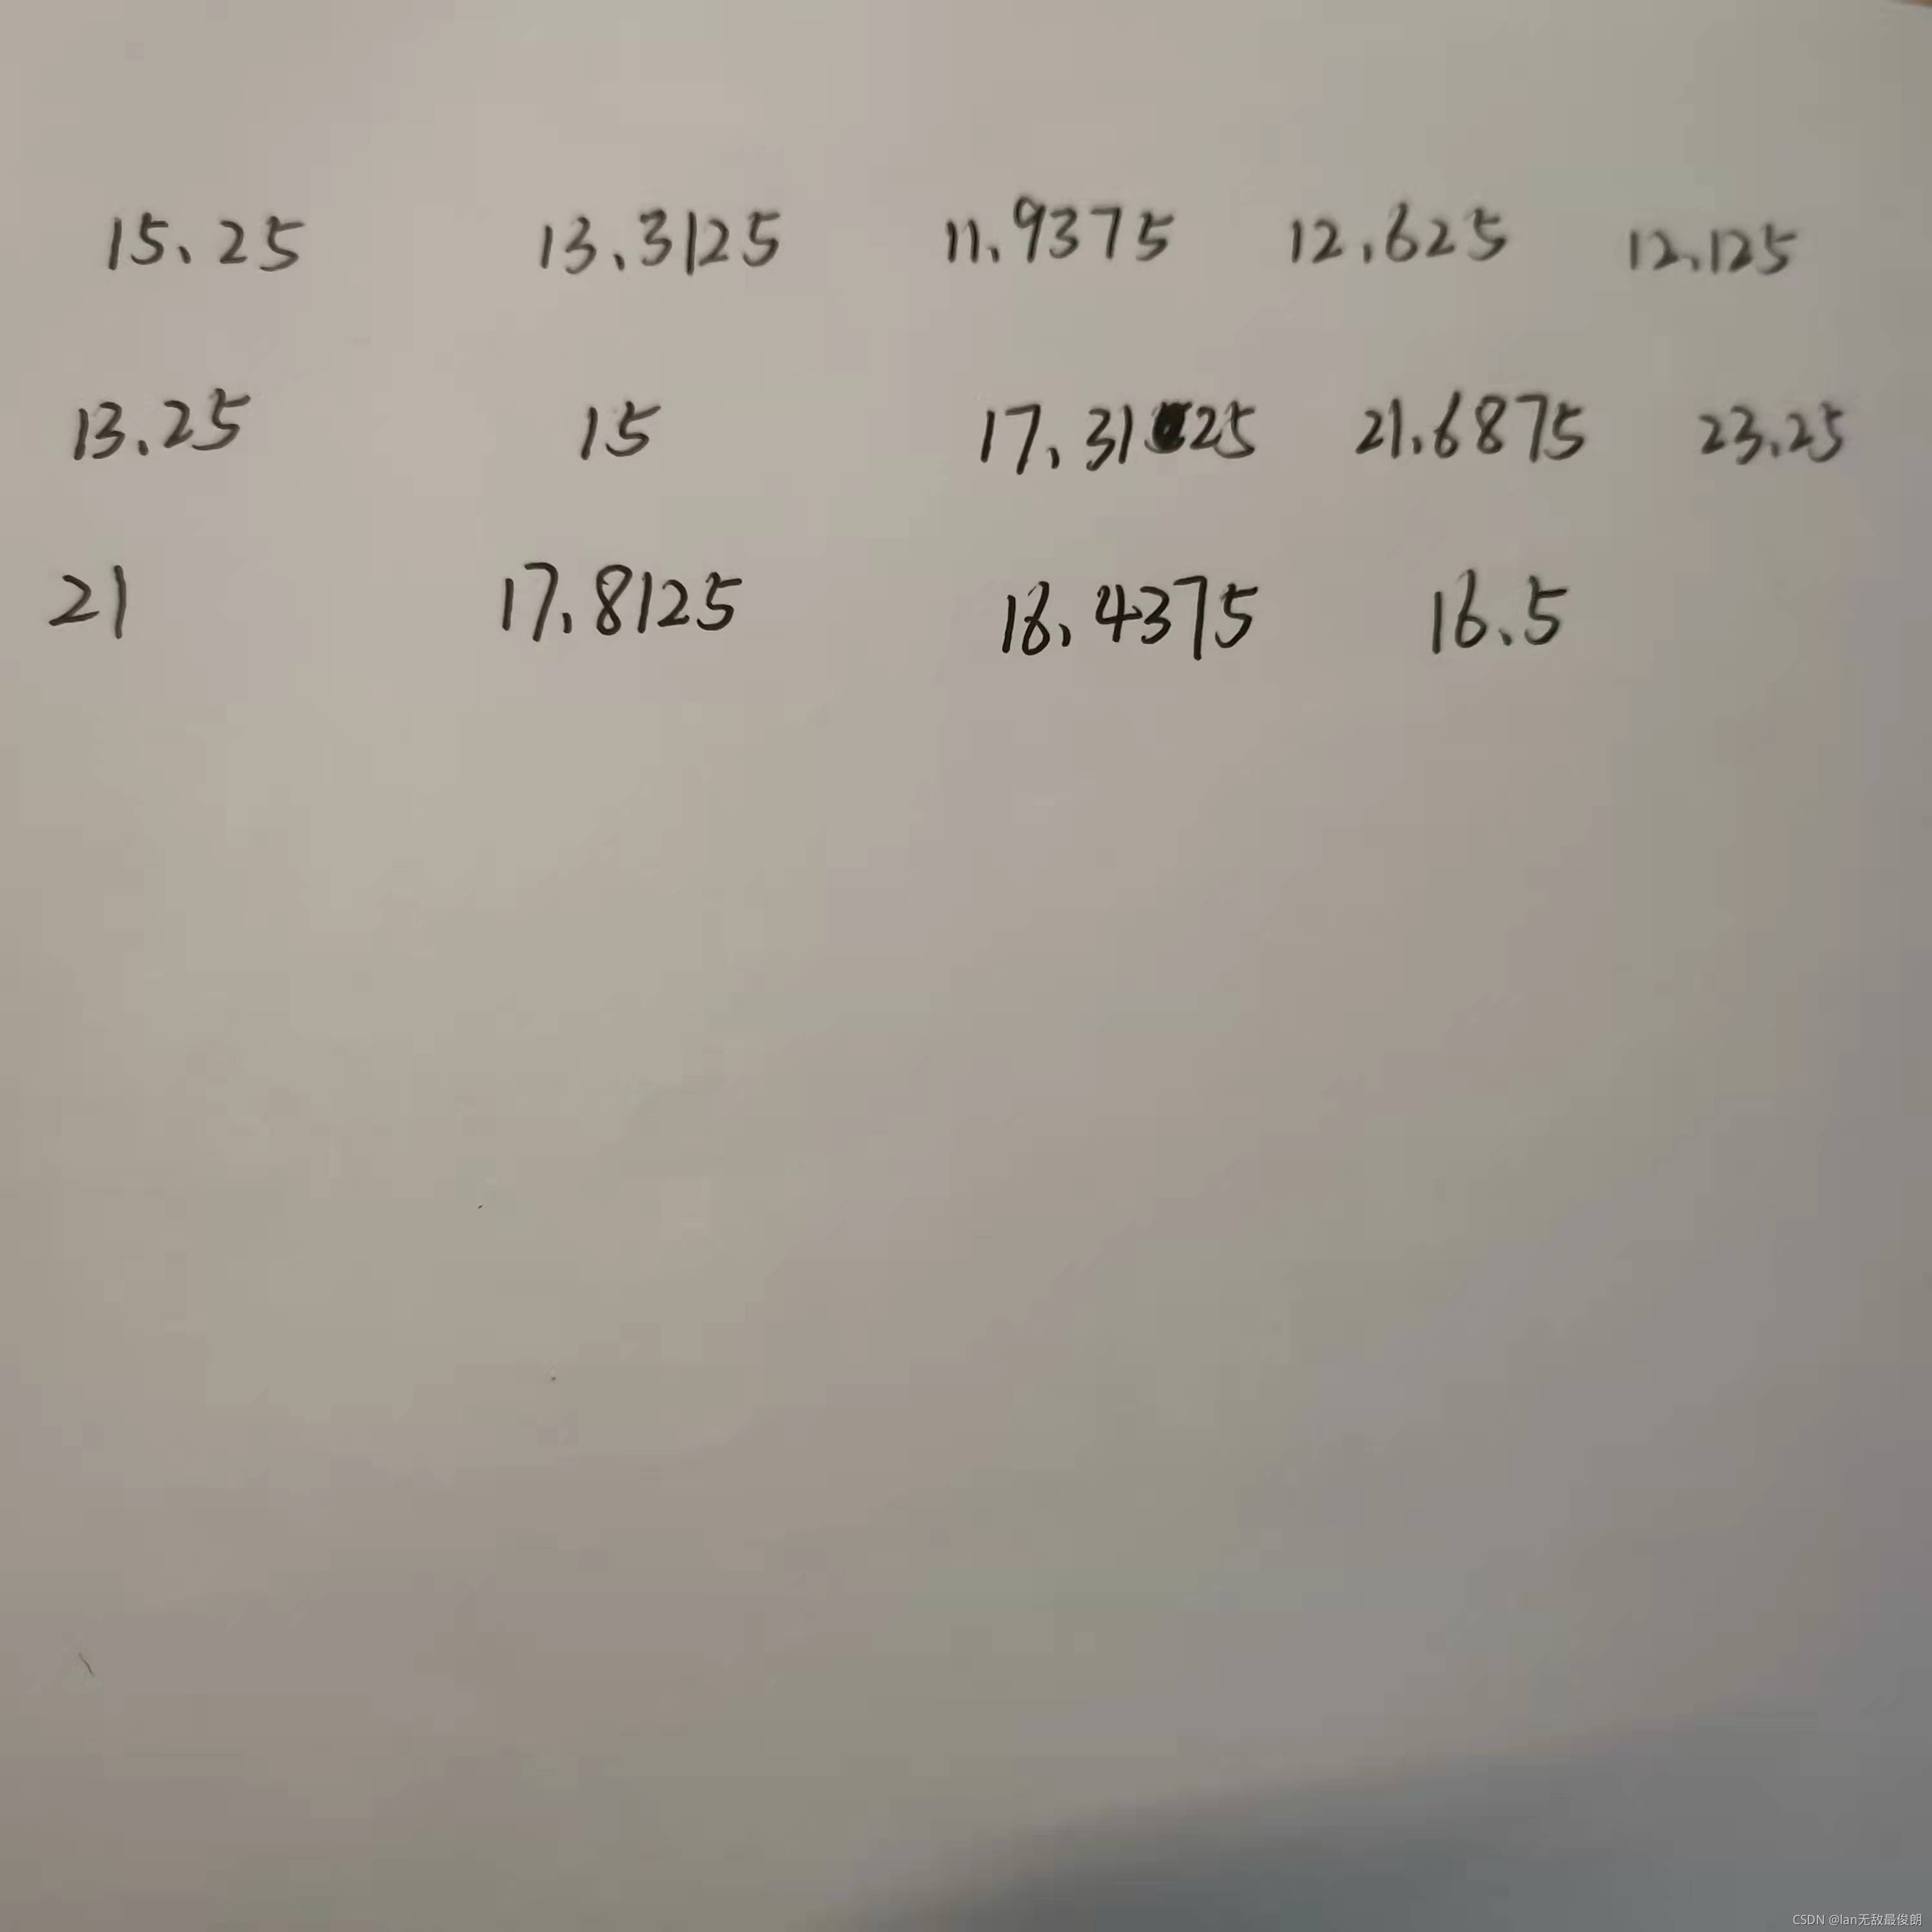 15.25 13.3125 11.9375 12.625 12.125
13.25 15 17.3125 21.6875 23.25
21 17.8125 16.4375 16.5
CSDN @lan无敌最俊朗